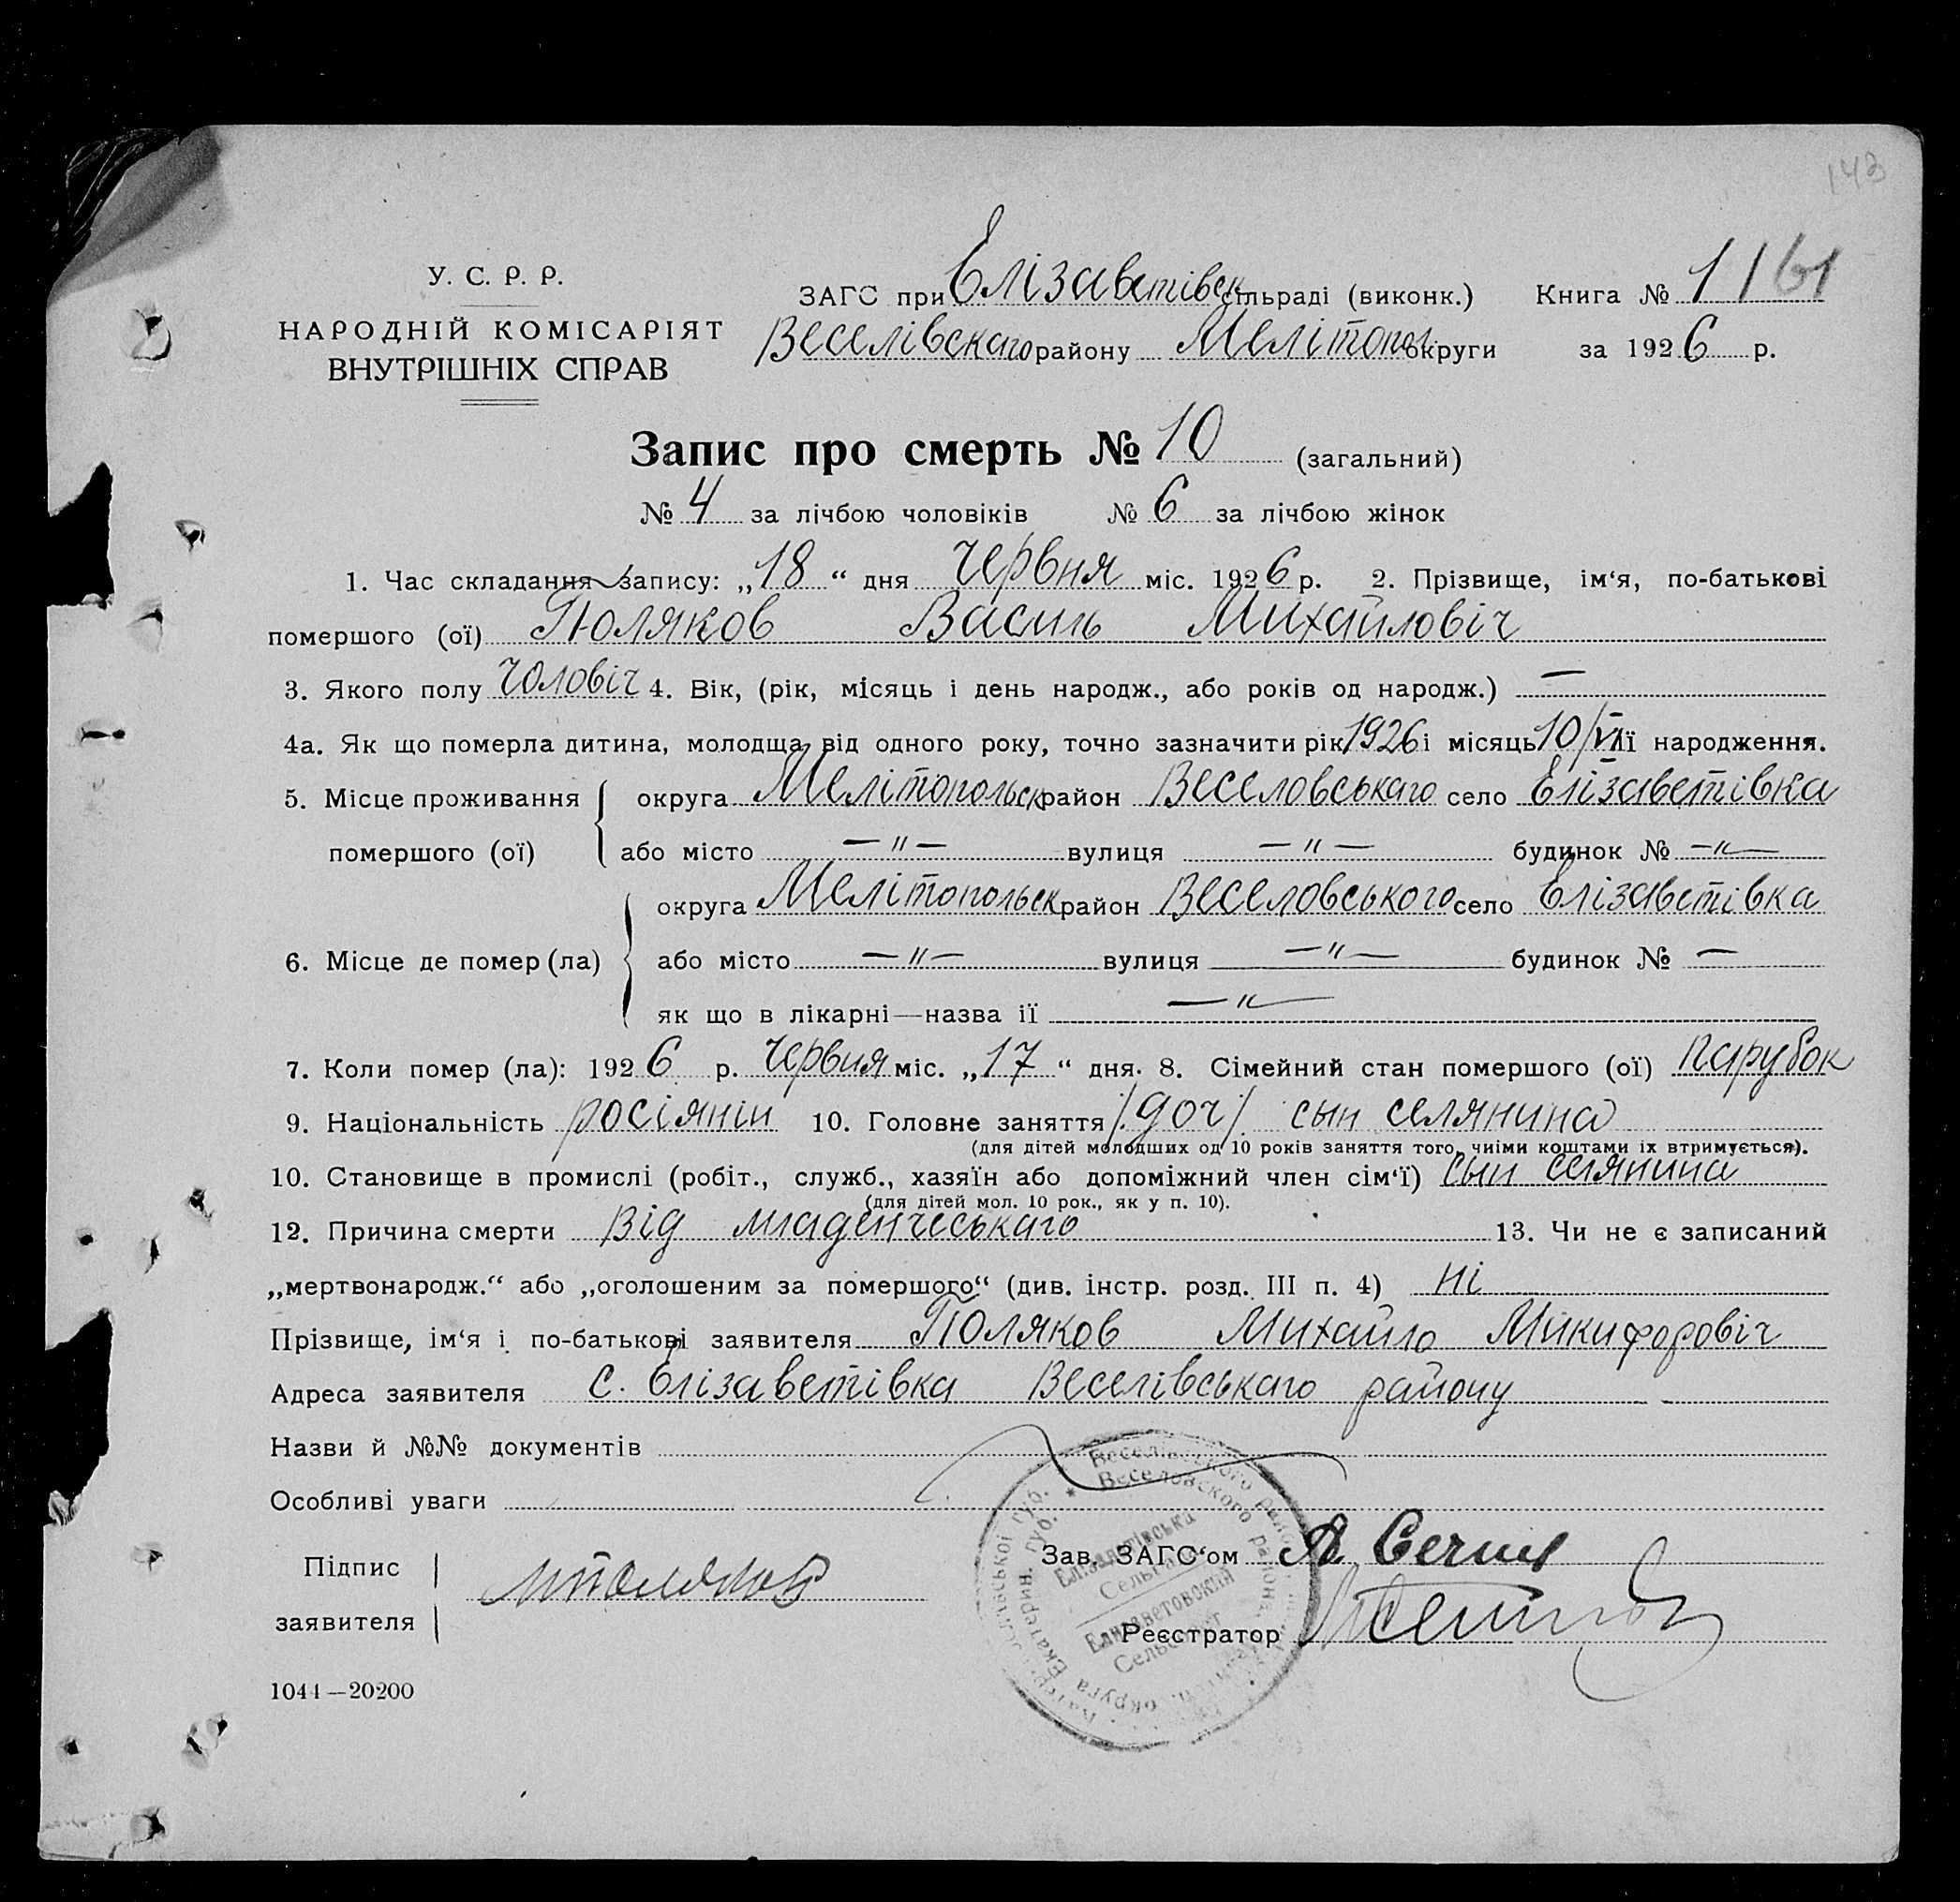 143
У. С. Р. Р.
НАРОДНІЙ КОМІСАРІЯТ
ВНУТРІШНІХ СПРАВ
ЗАГС при Елізаветівск сільраді (виконк.) Книга № 1 161
Веселівскаго району Мелітопол. округи за 1926 р.
Запис про смерть № 10 (загальний)
№ 4 за лічбою чоловіків № 6 за лічбою жінок
1. Час складання запису: „18“ дня Червня міс. 1926 р. 2. Прізвище, ім‘я, по-батькові
помершого (ої) Поляков Василь Михайловіч
3. Якого полу чоловіч 4. Вік, (рік, місяць і день народж., або років од народж.) —
4а. Як що померла дитина, молодща від одного року, точно зазначити рік 1926 і місяць 10/VI її народження.
5. Місце проживання помершого (ої) округа Мелітопольск район Веселовськаго село Елізаветівка
або місто —„— вулиця —„— будинок № —„—
6. Місце де помер (ла) округа Мелітопольск район Веселовського село Елізаветівка
або місто —„— вулиця —„— будинок № —
як що в лікарні—назва її —„—
7. Коли помер (ла): 1926 р. Червня міс. „17“ дня. 8. Сімейний стан помершого (ої) парубок
9. Національність росіянин 10. Головне заняття /доч/ сын селянина
(для дітей молодших од 10 років заняття того, чиїми коштами їх втримується).
10. Становище в промислі (робіт., служб., хазяїн або допоміжний член сім‘ї) сын селянина
(для дітей мол. 10 рок., як у п. 10).
12. Причина смерти Від младенчеськаго 13. Чи не є записаний
„мертвонародж.“ або „оголошеним за помершого“ (див. інстр. розд. III п. 4) ні
Прізвище, ім‘я і по-батькові заявителя Поляков Михайло Микифоровіч
Адреса заявителя с. Елізаветівка Веселівськаго району
Назви й №№ документів
Особливі уваги
Підпис заявителя МПоляков
Зав. ЗАГС‘ом
Реєстратор
Веселівського
Веселовского района
Єлізаветівська
Сельрада
Елизаветовский
Сельсовет
округа Екатерин. губ.
1044—20200